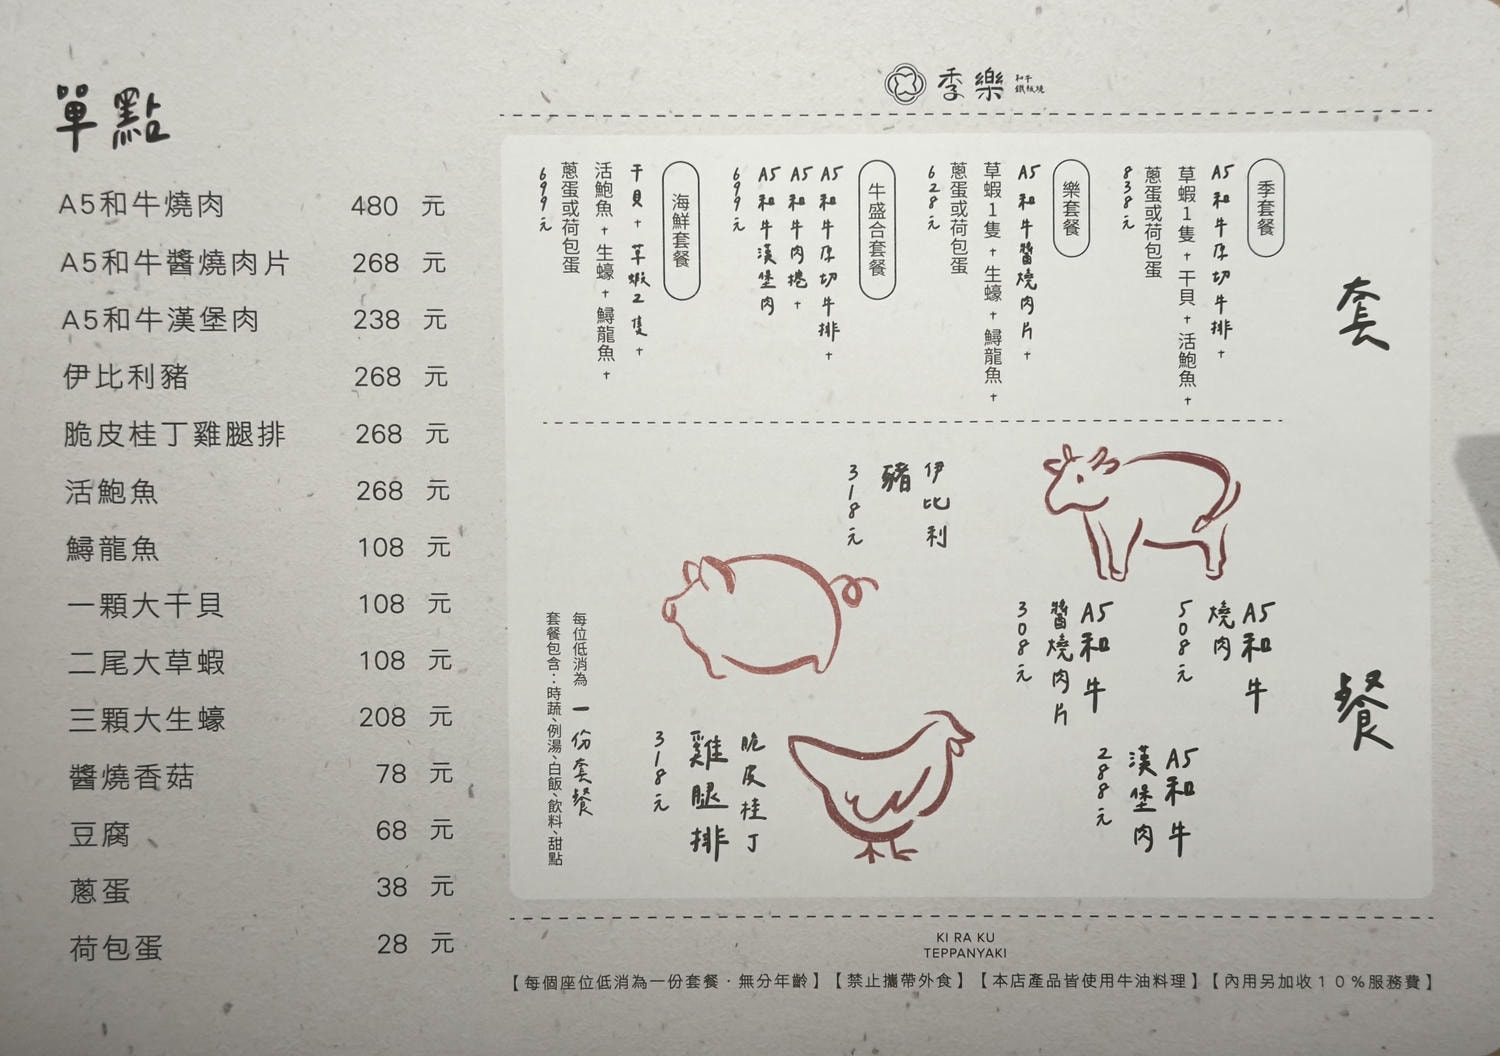 單點
A5和牛燒肉 480 元
A5和牛醬燒肉片 268 元
A5和牛漢堡肉 238 元
伊比利豬 268 元
脆皮桂丁雞腿排 268 元
活鮑魚 268 元
鱘龍魚 108 元
一顆大干貝 108 元
二尾大草蝦 108 元
三顆大生蠔 208 元
醬燒香菇 78 元
豆腐 68 元
蔥蛋 38 元
荷包蛋 28 元
季樂
和牛
鐵板燒
套餐
季套餐
A5和牛厚切牛排+
草蝦1隻+干貝+活鮑魚+
蔥蛋或荷包蛋
838元
樂套餐
A5和牛醬燒肉片+
草蝦1隻+生蠔+鱘龍魚+
蔥蛋或荷包蛋
628元
牛盛合套餐
A5和牛厚切牛排+
A5和牛肉捲+
A5和牛漢堡肉
699元
海鮮套餐
干貝+草蝦2隻+
活鮑魚+生蠔+鱘龍魚+
蔥蛋或荷包蛋
699元
A5和牛
燒肉
508元
A5和牛
醬燒肉片
308元
A5和牛
漢堡肉
288元
伊比利
豬
318元
脆皮桂丁
雞腿排
318元
每位低消為一份套餐
套餐包含：時蔬、例湯、白飯、飲料、甜點
KI RA KU
TEPPANYAKI
【每個座位低消為一份套餐·無分年齡】【禁止攜帶外食】【本店產品皆使用牛油料理】【內用另加收10%服務費】